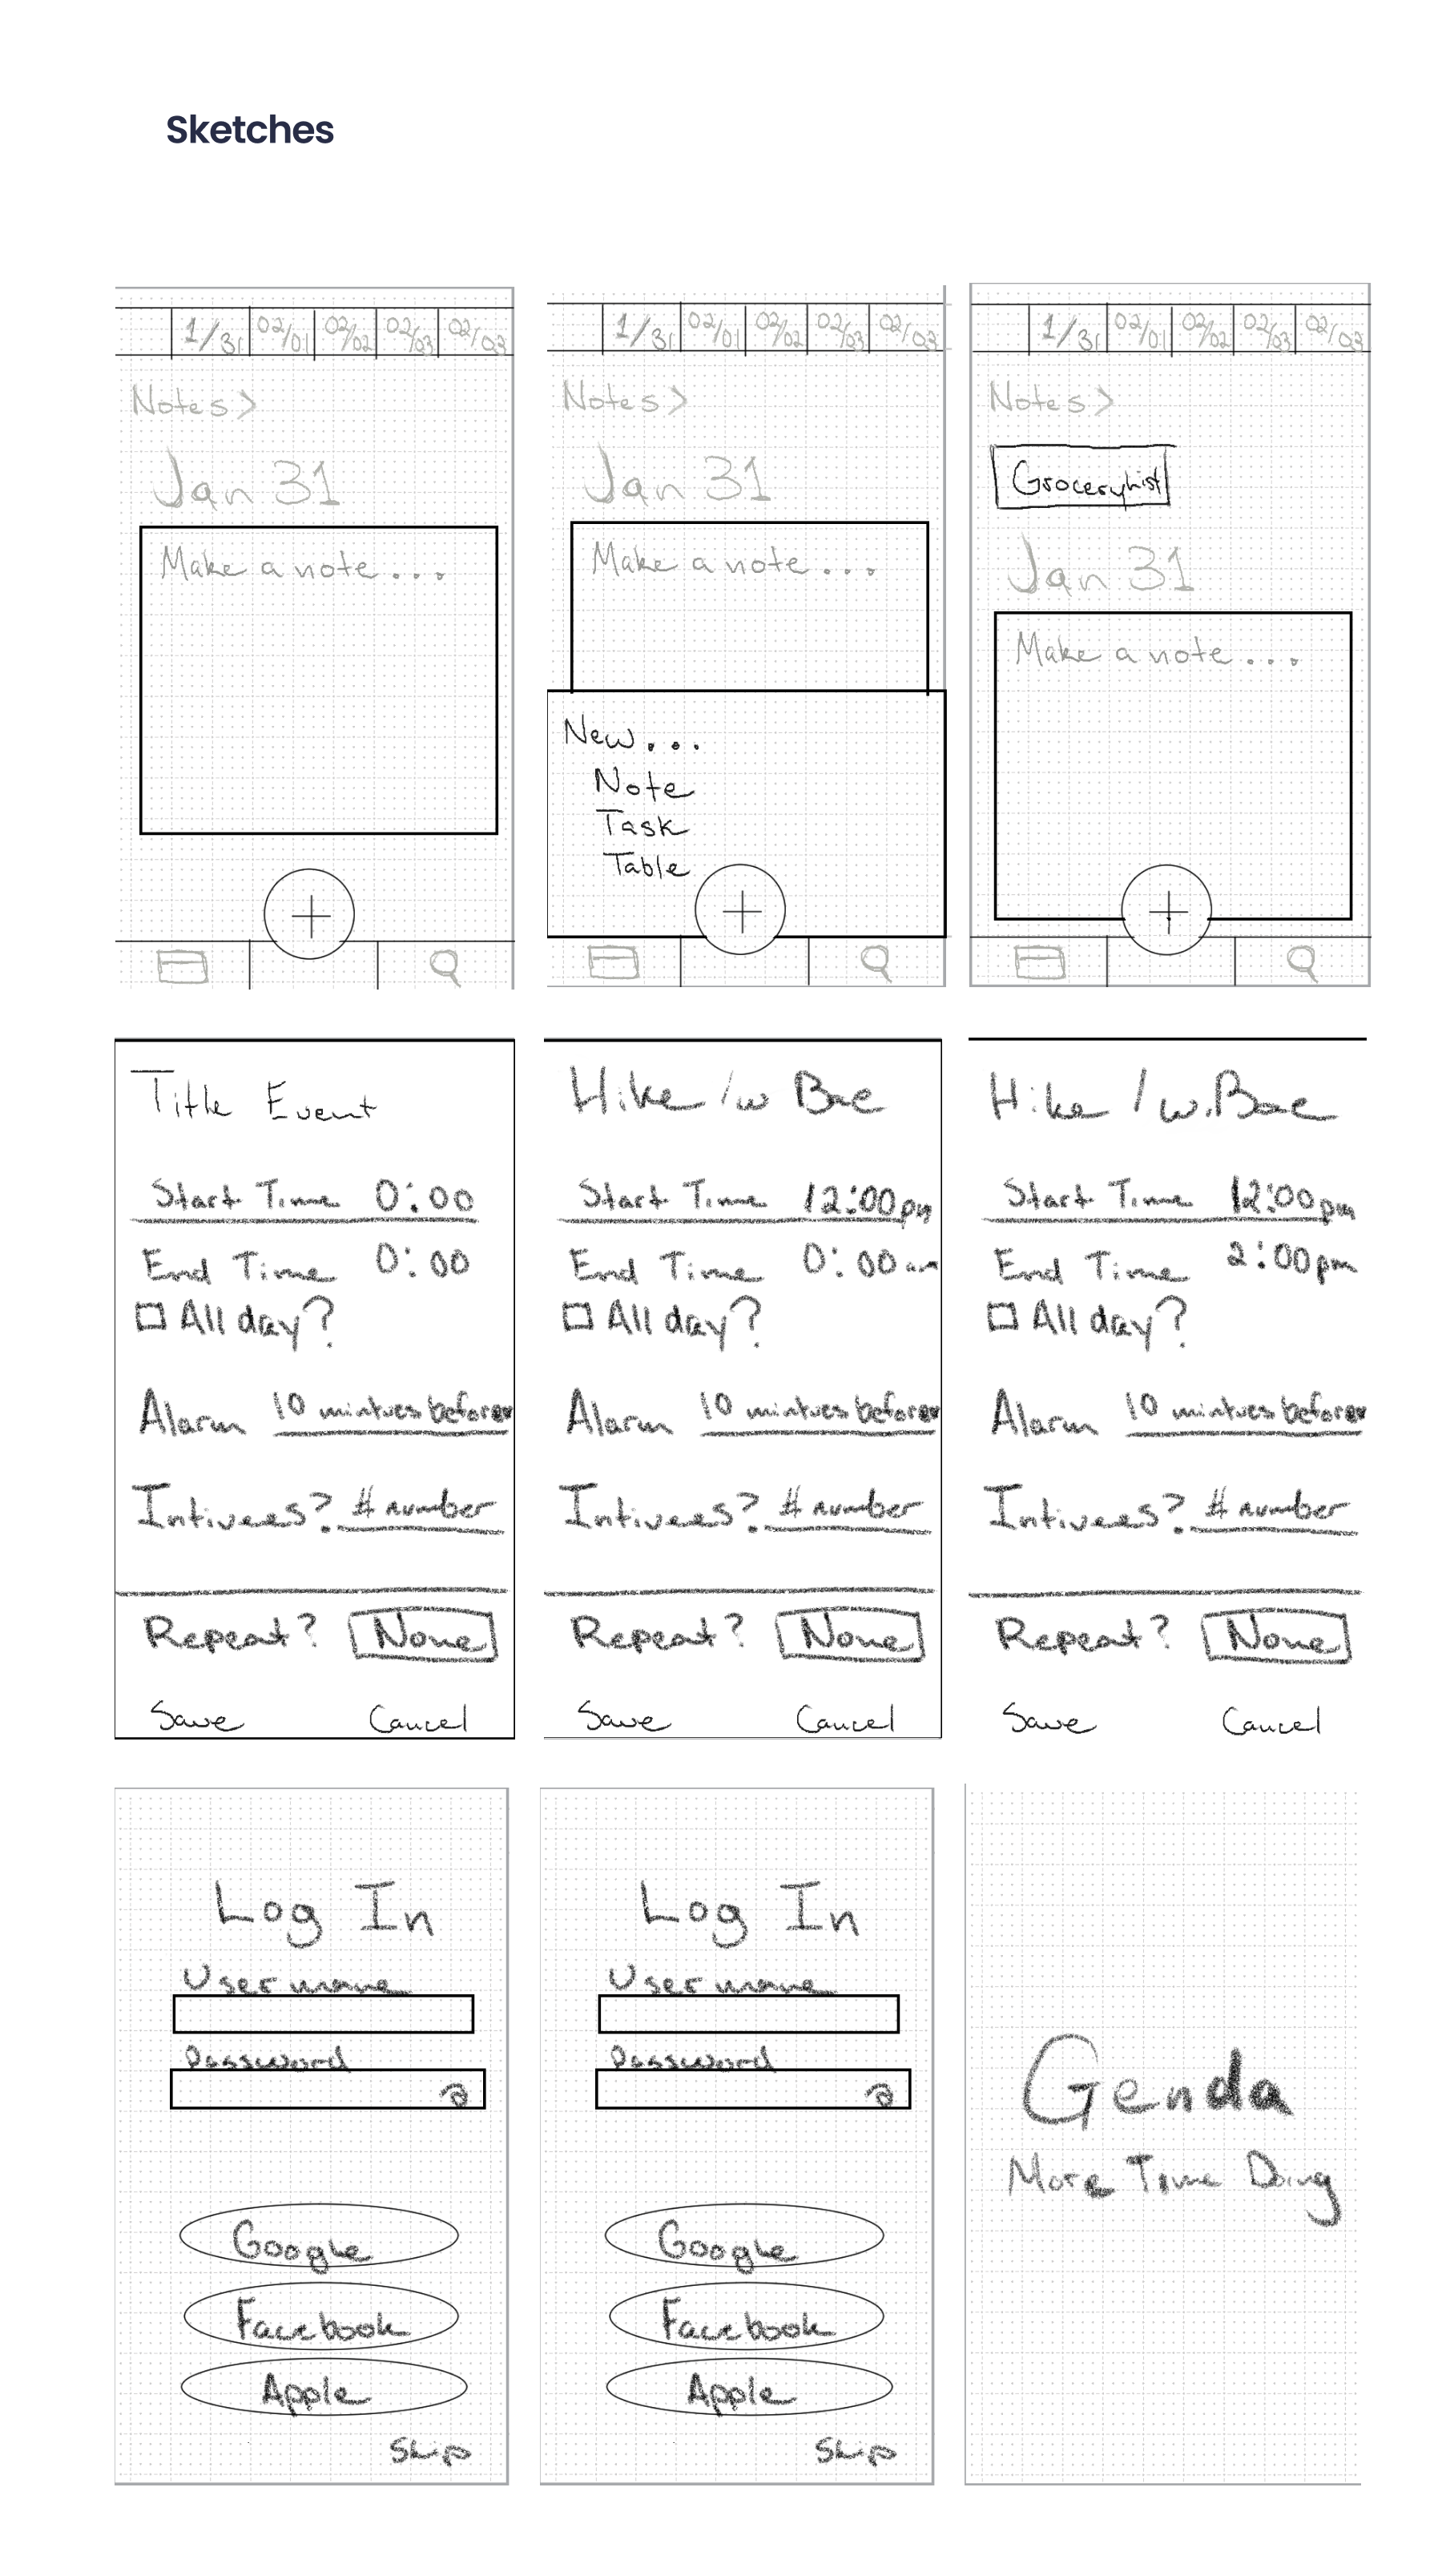 Sketches
1/31 02/01 02/02 02/03 02/03
Notes >
Jan 31
Make a note...
+
1/31 02/01 02/02 02/03 02/03
Notes >
Jan 31
Make a note...
New...
Note
Task
Table
+
1/31 02/01 02/02 02/03 02/03
Notes >
Grocery List
Jan 31
Make a note...
+
Title Event
Start Time 0:00
End Time 0:00
All day?
Alarm 10 mintues before
Intivees? # number
Repeat? None
Save Cancel
Hike /w Bae
Start Time 12:00pm
End Time 0:00 am
All day?
Alarm 10 mintues before
Intivees? # number
Repeat? None
Save Cancel
Hike /w. Bae
Start Time 12:00pm
End Time 2:00pm
All day?
Alarm 10 mintues before
Intivees? # number
Repeat? None
Save Cancel
Log In
Username
Password
Google
Facebook
Apple
Skip
Log In
Username
Password
Google
Facebook
Apple
Skip
Genda
More Time Doing